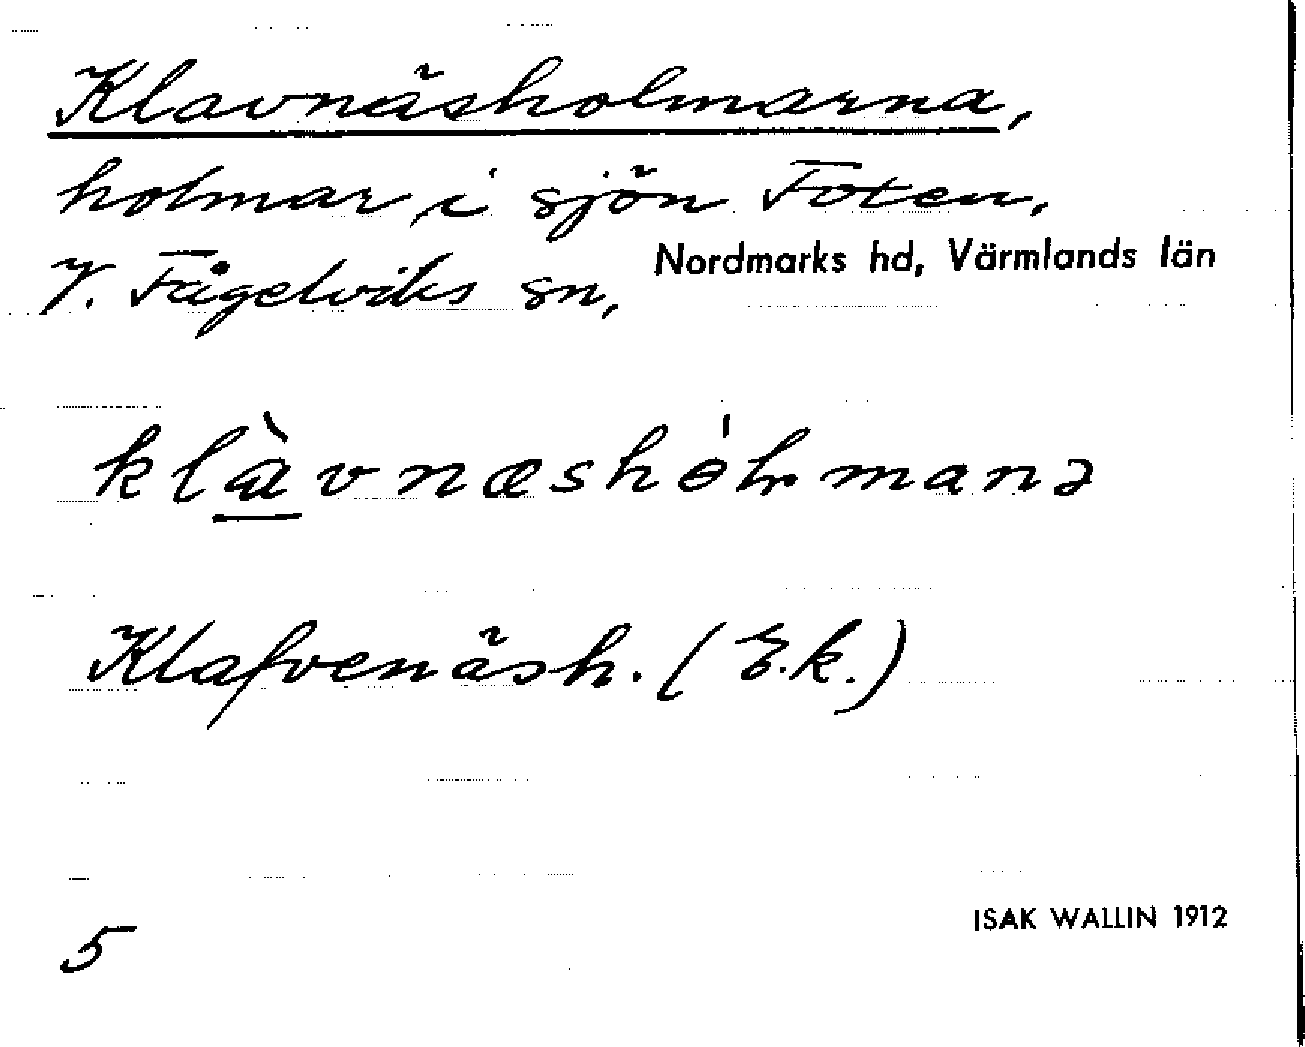 Klavnäsholmarna,
holmar i sjön Foten,
V. Fågelviks sn, Nordmarks hd, Värmlands län
klàvnæshɵ́lmanə
Klafvenäsh. (E.k.)
5
ISAK WALLIN 1912